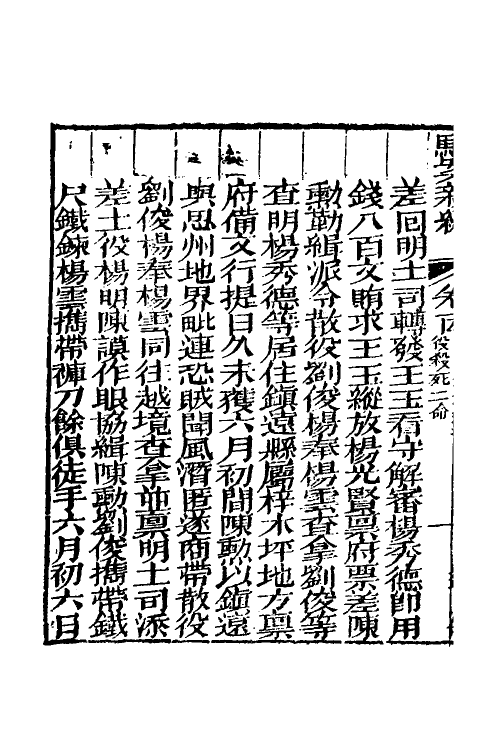 差回明土司轉發王玉看守解審楊秀德即用
錢八百文賄求王玉縱放楊光賢稟府票差陳
動勒緝派令散役劉俊楊奉楊雲查拿劉俊等
查明楊秀德等居住鎮遠縣屬梓木坪地方稟
府備文行提日久未獲六月初間陳動以鎮遠
與思州地界毗連恐賊聞風潛匿遂商帶散役
劉俊楊奉楊雲同往越境查拿並稟明土司添
差土役楊明陳謨作眼協緝陳動劉俊攜帶鐵
尺鐵鍊楊雲攜帶褲刀餘俱徒手六月初六日
卷下
役殺死二命